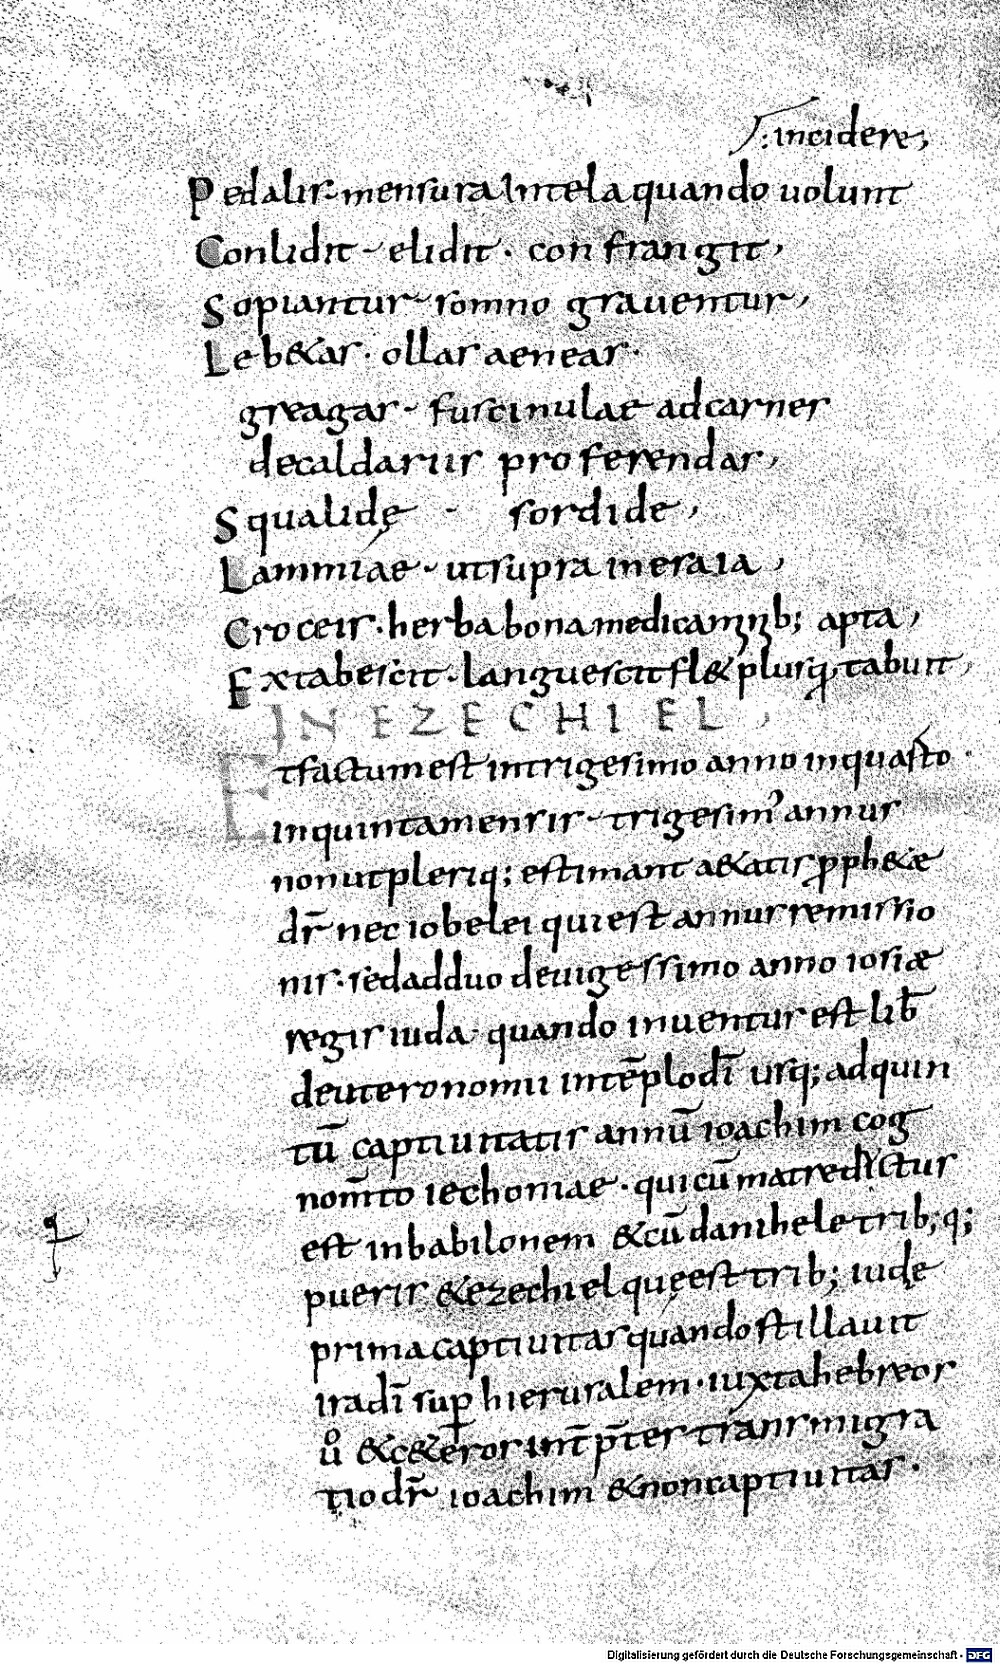 incidere;
Pedalis mensura Intela quando uolunt
Conlidit ~ elidit · confrangit,
Sopiantur ~ somno grauentur,
Leb&as · ollas aeneas ·
greagas ~ fuscinulae adcarnes
decaldariis proferendas,
Squalidę - sordide,
Lammiae ~ utsupra inesaia,
Croceis · herba bona medicam b; apta,
Extabescit · languescit fl& plusq, tabuit,
IN EZECHIEL,
Etfactumest intrigesimo anno inquarto ·
inquinta mensis ~ trigesim' annus
non ut pleriq; estimant a&atis pph&ae
dr̄ nec iobelei qui est annus remissio
nis · sedadduo deuigessimo anno iosiæ
regis iuda quando inuentus est lib̄
deuteronomii intēplo dī usq; adquin
tū captiuitatis annū ioachim cog
nom̄to iechoniae · quicū matre dictus
est inbabilonem &cū danihele trib; q;
pueris &ezechiel quę est trib; iudę
prima captiuitas quando stillauit
ira dī sup hierusalem · iuxta hebreos
ů &c&eros int̄p̄ter transmigra
tio dr̄ ioachim &non captiuitas ·
Digitalisierung gefördert durch die Deutsche Forschungsgemeinschaft - DFG